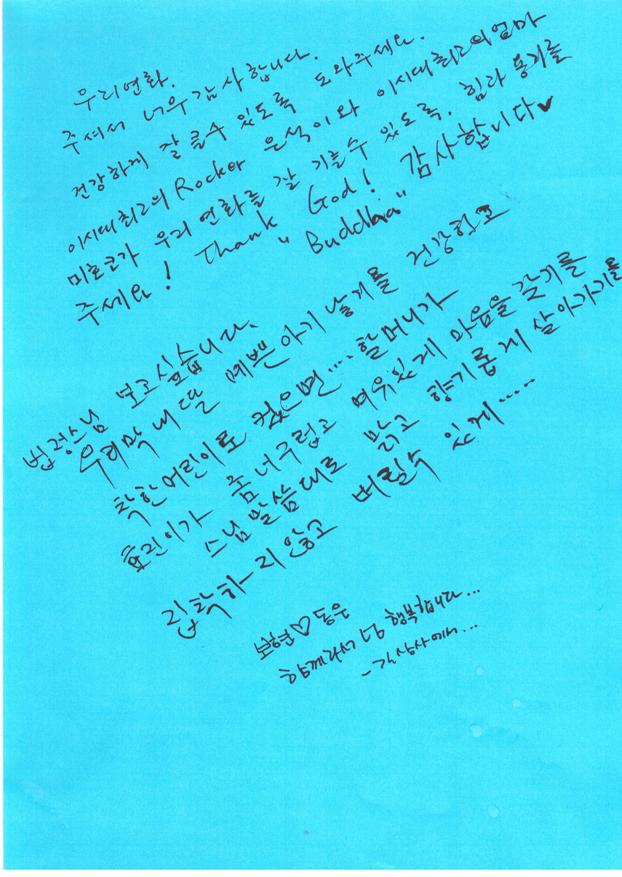 우리연화.
주셔서 너무 감사합니다.
건강하게 잘 클수 있도록 도와주세요.
이시대 최고의 Rocker 은석이와 이시대 최고의 엄마
미호코가 우리 연화를 잘 기를수 있도록. 힘과 용기를
주세요! Thank God! 감사합니다♥
"Buddha"
법정스님 보고싶습니다.
우리막내딸 예쁜아기 낳게를 건강하고
착한어린이로 컸으면.... 할머니가
효린이가 좀 너구럽고 여유있게 마음을 갖기를
스님말씀대로 맑고 향기롭게 살아가기를
집착하지 않고 버릴수 있게.....
보현♡동은
함께라서 넘 행복합니다...
-길상사에서...